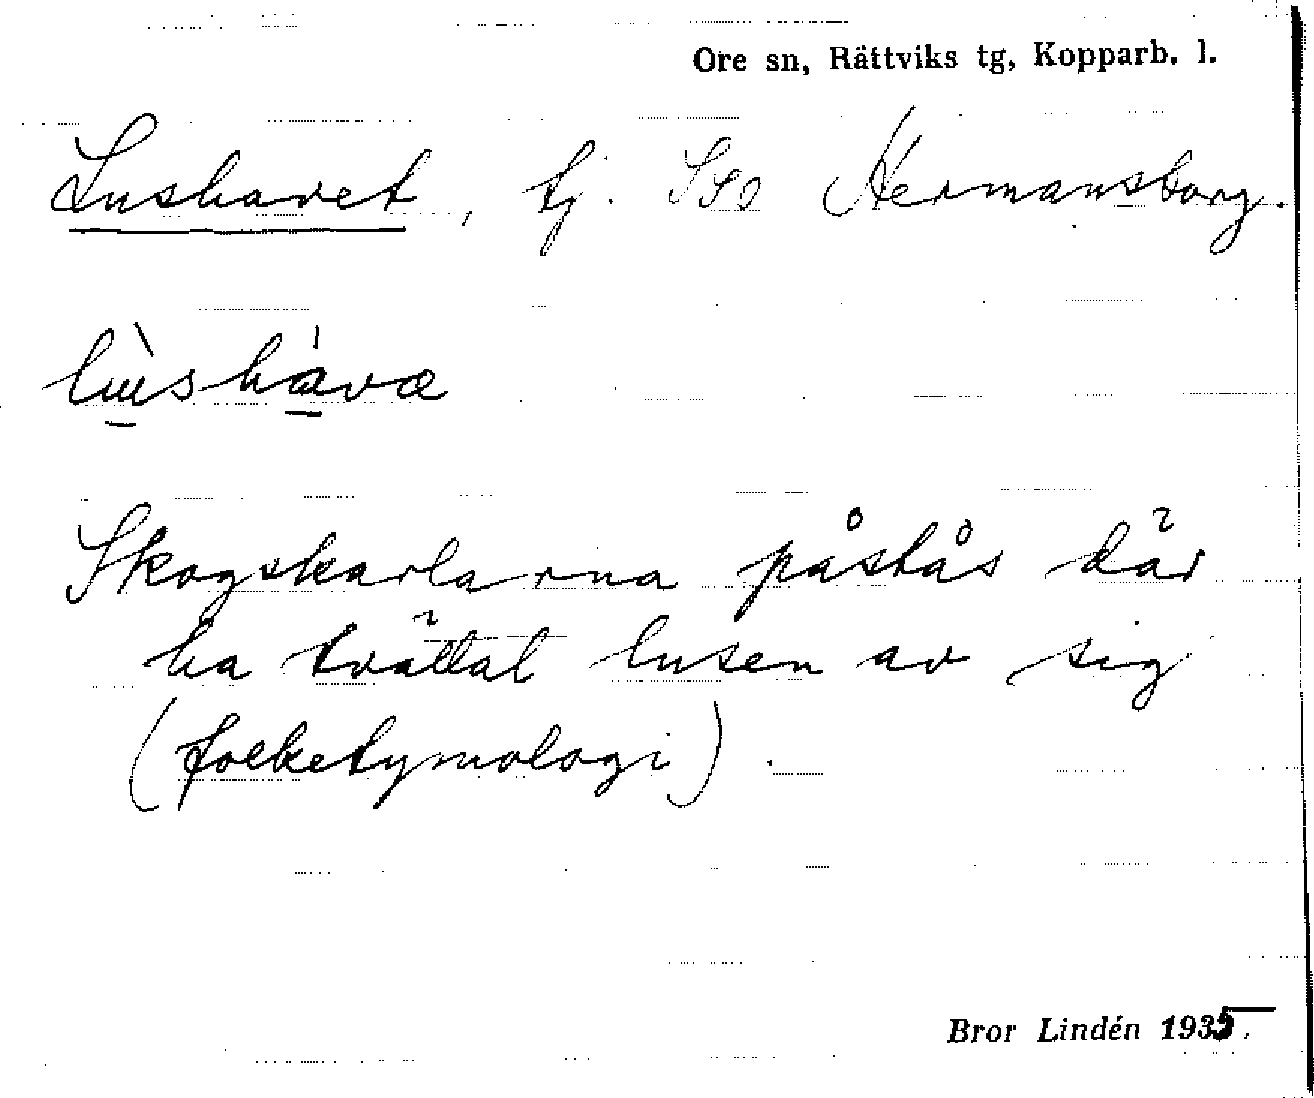 Ore sn, Rättviks tg, Kopparb. l.
Lushavet, tj. SSO Hermansborg.
Skogskarlarna påstås där
ha tvättat lusen av sig
(folketymologi).
Bror Lindén 1935.